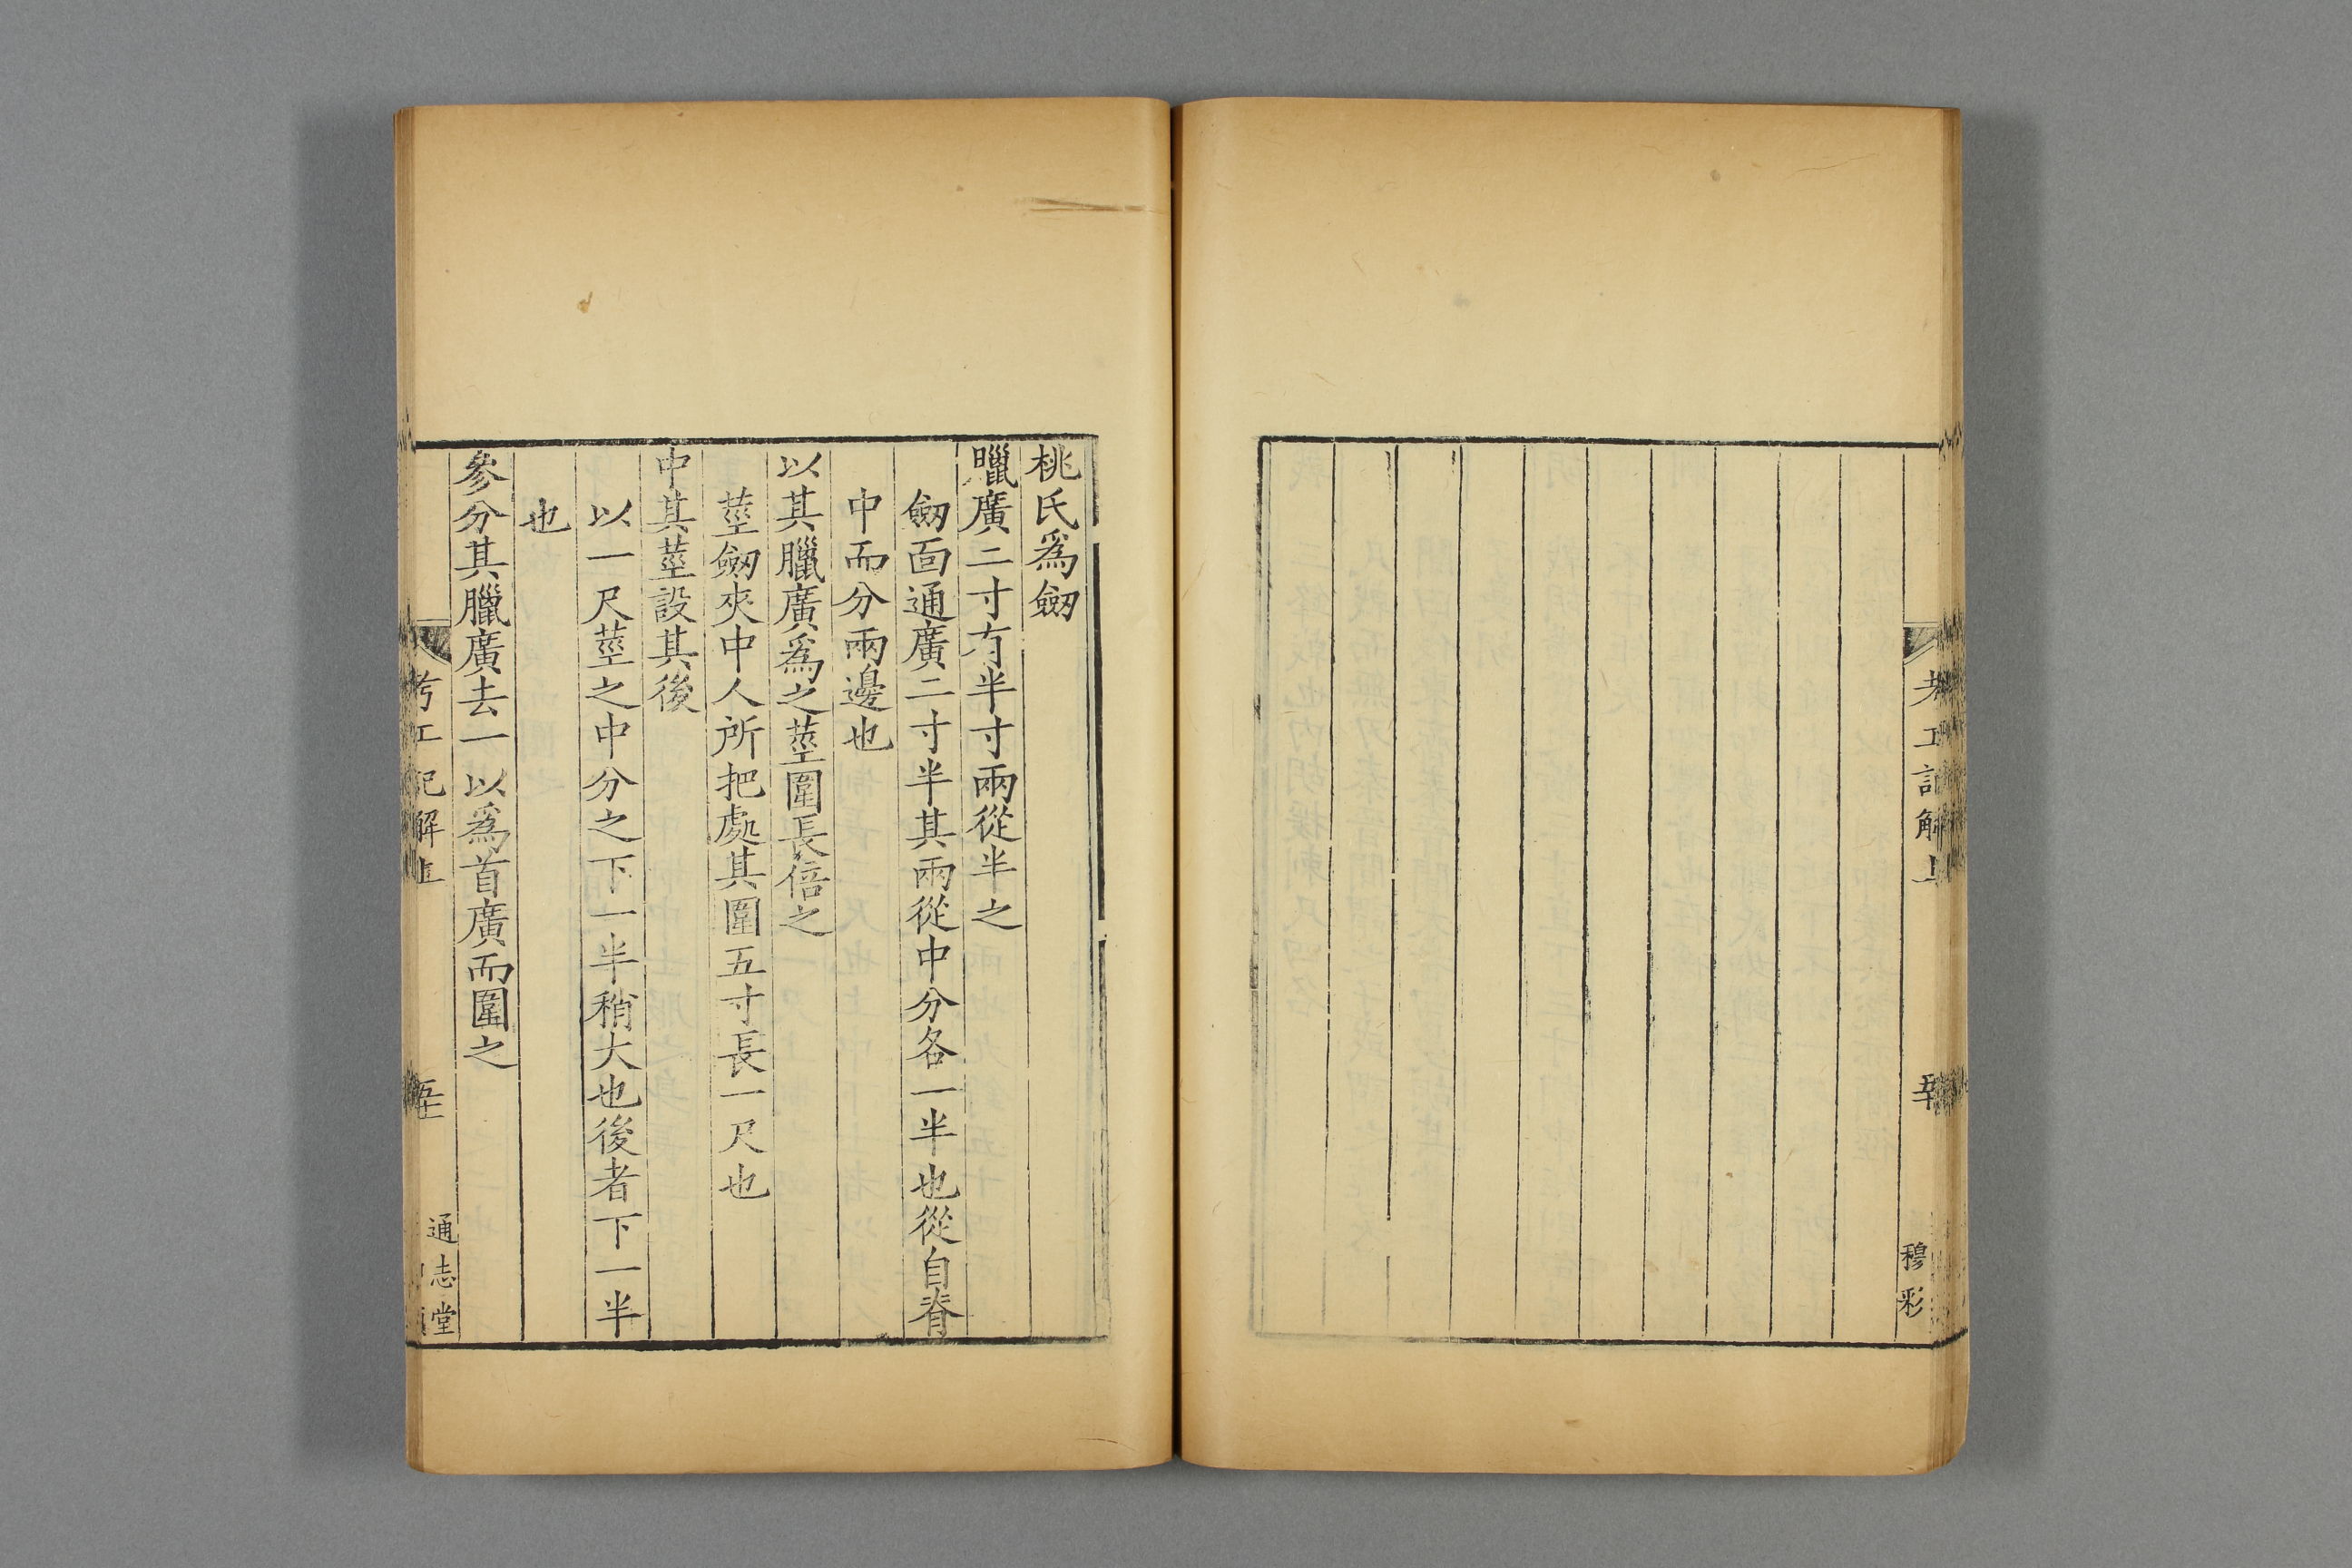 考工記解上
穆彩
桃氏爲劒
臘廣二寸有半寸兩從半之
劒面通廣二寸半其兩從中分各一半也從自脊
中而分兩邊也
以其臘廣爲之莖圍長倍之
莖劒夾中人所把處其圍五寸長一尺也
中其莖設其後
以一尺莖之中分之下一半稍大也後者下一半
也
參分其臘廣去一以爲首廣而圍之
考工記解上
通志堂